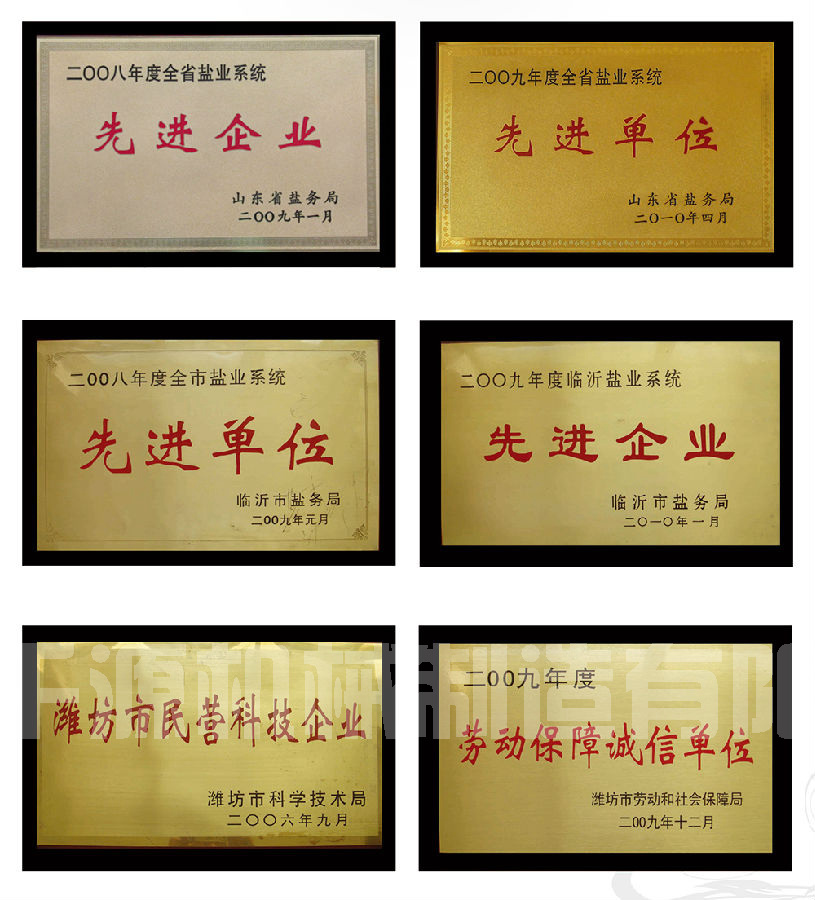 二〇〇八年度全省盐业系统
先进企业
山东省盐务局
二〇〇九年一月
二〇〇九年度全省盐业系统
先进单位
山东省盐务局
二〇一〇年四月
二〇〇八年度全市盐业系统
先进单位
临沂市盐务局
二〇〇九年元月
二〇〇九年度临沂盐业系统
先进企业
临沂市盐务局
二〇一〇年一月
潍坊市民营科技企业
潍坊市科学技术局
二〇〇六年九月
二〇〇九年度
劳动保障诚信单位
潍坊市劳动和社会保障局
二〇〇九年十二月
源机械制造有限